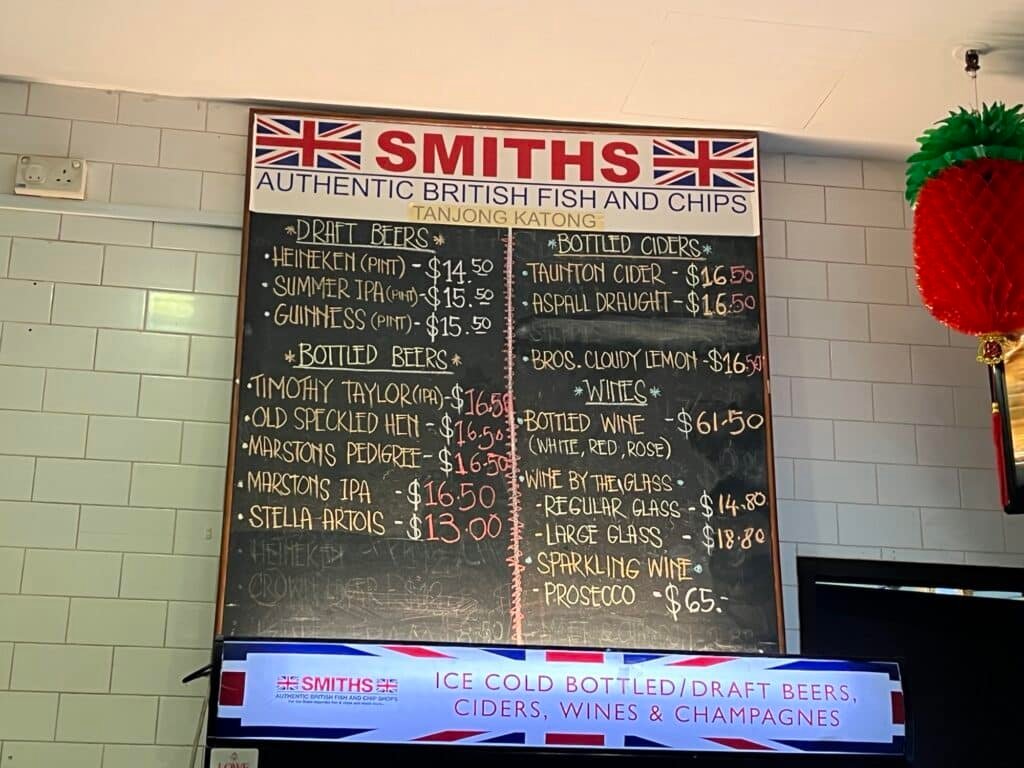 SMITHS
AUTHENTIC BRITISH FISH AND CHIPS
TANJONG KATONG
*DRAFT BEERS*
•HEINEKEN (PINT) - $14.50
•SUMMER IPA (PINT) - $15.50
•GUINNESS (PINT) - $15.50
*BOTTLED BEERS*
•TIMOTHY TAYLOR (IPA) - $16.50
•OLD SPECKLED HEN - $16.50
•MARSTONS PEDIGREE - $16.50
•MARSTONS IPA - $16.50
•STELLA ARTOIS - $13.00
HEINEKEN
*BOTTLED CIDERS*
•TAUNTON CIDER - $16.50
•ASPALL DRAUGHT - $16.50
•BROS. CLOUDY LEMON - $16.50
*WINES*
•BOTTLED WINE - $61.50
(WHITE, RED, ROSE)
•WINE BY THE GLASS•
- REGULAR GLASS - $14.80
- LARGE GLASS - $18.80
•SPARKLING WINE•
- PROSECCO - $65.-
SMITHS
AUTHENTIC BRITISH FISH AND CHIP SHOPS
ICE COLD BOTTLED/DRAFT BEERS,
CIDERS, WINES & CHAMPAGNES